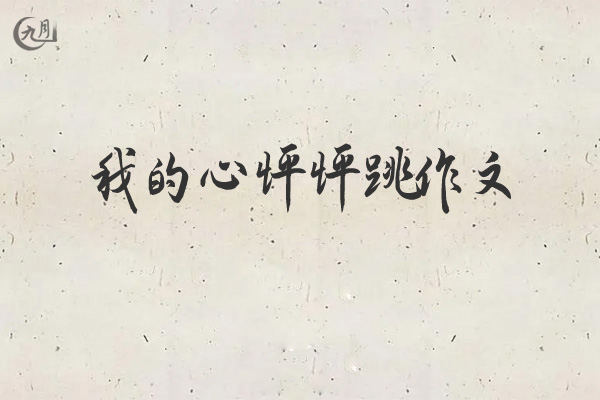 九月
我的心怦怦跳作文